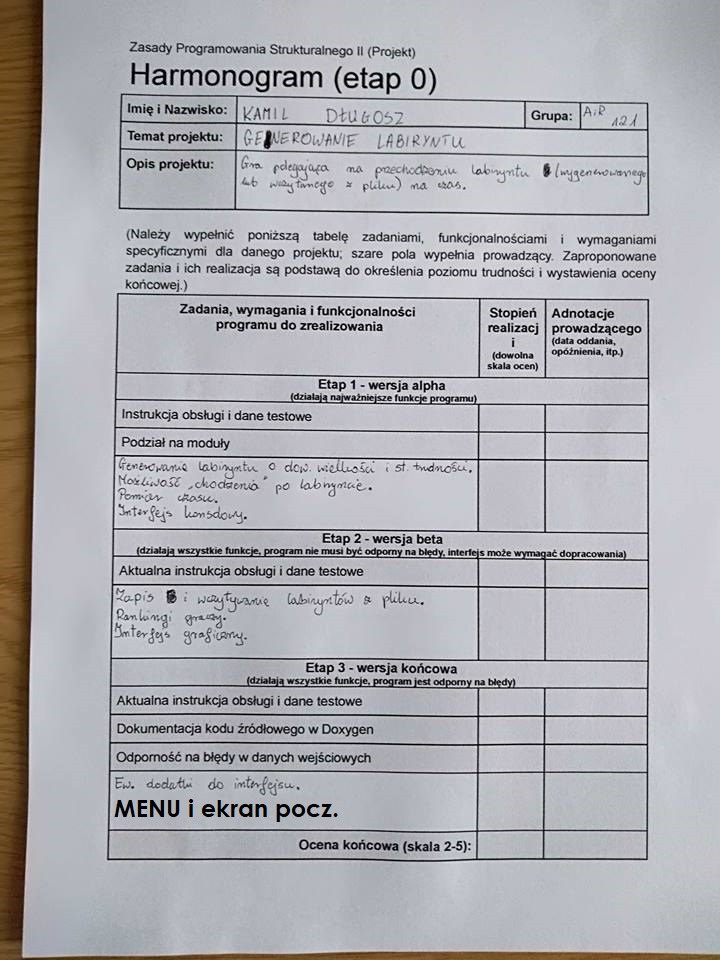 Zasady Programowania Strukturalnego II (Projekt)
Harmonogram (etap 0)
Imię i Nazwisko: KAMIL DŁUGOSZ Grupa: AiR 121
Temat projektu: GENEROWANIE LABIRYNTU
Opis projektu: Gra polegająca na przechodzeniu labiryntu (wygenerowanego
lub wczytanego z pliku) na czas.
(Należy wypełnić poniższą tabelę zadaniami, funkcjonalnościami i wymaganiami
specyficznymi dla danego projektu; szare pola wypełnia prowadzący. Zaproponowane
zadania i ich realizacja są podstawą do określenia poziomu trudności i wystawienia oceny
końcowej.)
Zadania, wymagania i funkcjonalności Stopień Adnotacje
programu do zrealizowania realizacj prowadzącego
i (data oddania,
(dowolna opóźnienia, itp.)
skala ocen)
Etap 1 - wersja alpha
(działają najważniejsze funkcje programu)
Instrukcja obsługi i dane testowe
Podział na moduły
Generowanie labiryntu o dow. wielkości i st. trudności.
Możliwość „chodzenia" po labiryncie.
Pomiar czasu.
Interfejs konsolowy.
Etap 2 - wersja beta
(działają wszystkie funkcje, program nie musi być odporny na błędy, interfejs może wymagać dopracowania)
Aktualna instrukcja obsługi i dane testowe
Zapis i wczytywanie labiryntów z pliku.
Rankingi graczy.
Interfejs graficzny.
Etap 3 - wersja końcowa
(działają wszystkie funkcje, program jest odporny na błędy)
Aktualna instrukcja obsługi i dane testowe
Dokumentacja kodu źródłowego w Doxygen
Odporność na błędy w danych wejściowych
Ew. dodatki do interfejsu.
MENU i ekran pocz.
Ocena końcowa (skala 2-5):